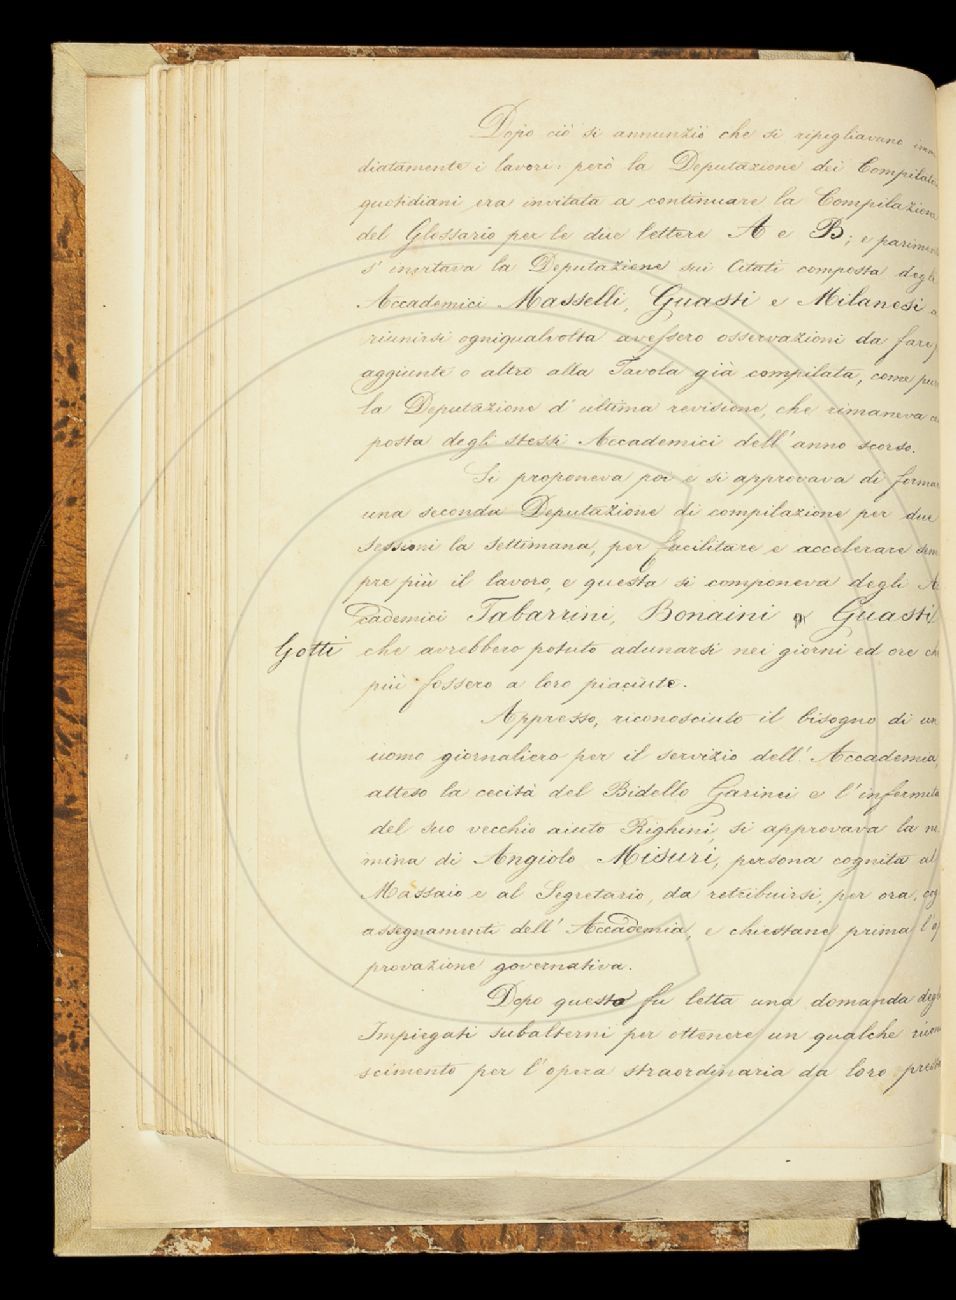 Dopo ciò si annunziò che si ripigliavano imme
diatamente i lavori: però la Deputazione dei Compilato
quotidiani era invitata a continuare la Compilazione
del Glossario per le due lettere A e B; e parimente
s'invitava la Deputazione sui Citati composta degli
Accademici Masselli, Guasti e Milanesi a
riunirsi ogniqualvolta avessero osservazioni da fare,
aggiunte o altro alla Tavola già compilata, come pure
la Deputazione d'ultima revisione, che rimaneva
posta degli stessi Accademici dell'anno scorso.
Si proponeva poi e si approvava di formar
una seconda Deputazione di compilazione per due
sessioni la settimana, per facilitare e accelerare sem
pre più il lavoro, e questa si componeva degli A
cademici Tabarrini, Bonaini e Guasti,
Gotti
che avrebbero potuto adunarsi nei giorni ed ore ch
più fossero a loro piaciute.
Appresso, riconosciuto il bisogno di un
uomo giornaliero per il servizio dell'Accademia,
atteso la cecità del Bidello Garinei e l'infermità
del suo vecchio aiuto Righini, si approvava la no
mina di Angiolo Misuri, persona cognita al
Massaio e al Segretario, da retribuirsi, per ora, cogl
assegnamenti dell'Accademia, e chiestane prima l'ap
provazione governativa.
Dopo questo fu letta una domanda degli
Impiegati subalterni per ottenere un qualche ricono
scimento per l'opera straordinaria da loro presta